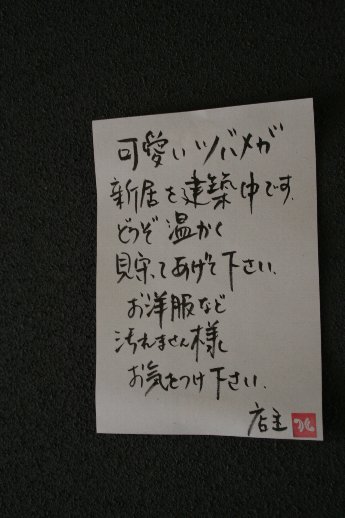 可愛いツバメが
新居を建築中です。
どうぞ温かく
見守ってあげて下さい。
お洋服など
汚れません様
お気をつけ下さい。
店主